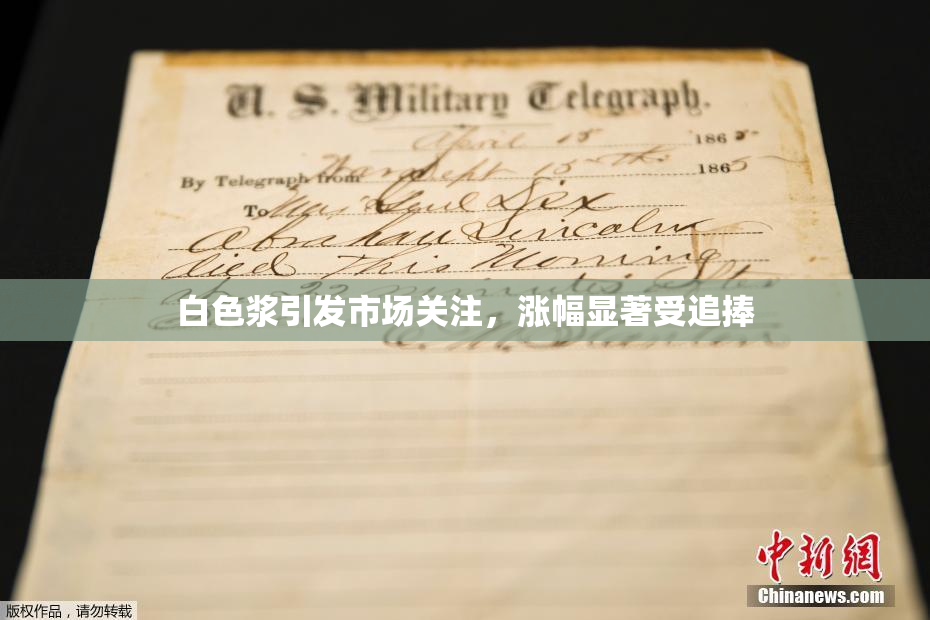 U. S. Military Telegraph.
April 15 1865
By Telegraph from War Dept 15th 1865
To Maj Genl Dix
Abraham Lincoln
died This Morning
at 22 minutes after
白色浆引发市场关注，涨幅显著受追捧
E. M. Stanton
中新网
Chinanews.com
版权作品，请勿转载